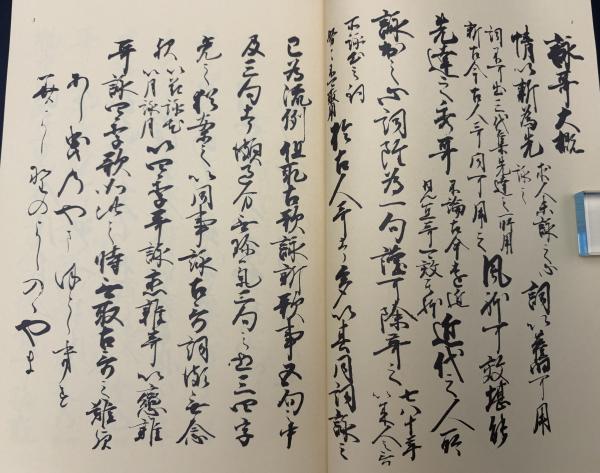 詠哥大概
情以新為先 求人未詠之心詠之 詞以舊可用
詞不可出三代集先達之所用
新古今古人哥同可用之 風躰可效堪能
先達之秀哥 不論古今遠近
見宜哥可效其躰 近代之人所
詠出之心詞雖為一句謹可除弃之 七八十年
以来人之哥
所詠出之詞
努々不可取用 於古人哥者多以其同詞詠之
已為流例但取古歌詠新歌事五句之中
及三句者頗過分無珎氣二句之上三四字
免之猶案之以同事詠古哥詞頗無念
歟 以花詠花
以月詠月 以四季哥詠恋雜哥以恋雜
哥詠四季歌如此之時無取古哥之難歟
あし曳のやまほとゝきす
みよし野のよしのゝやま